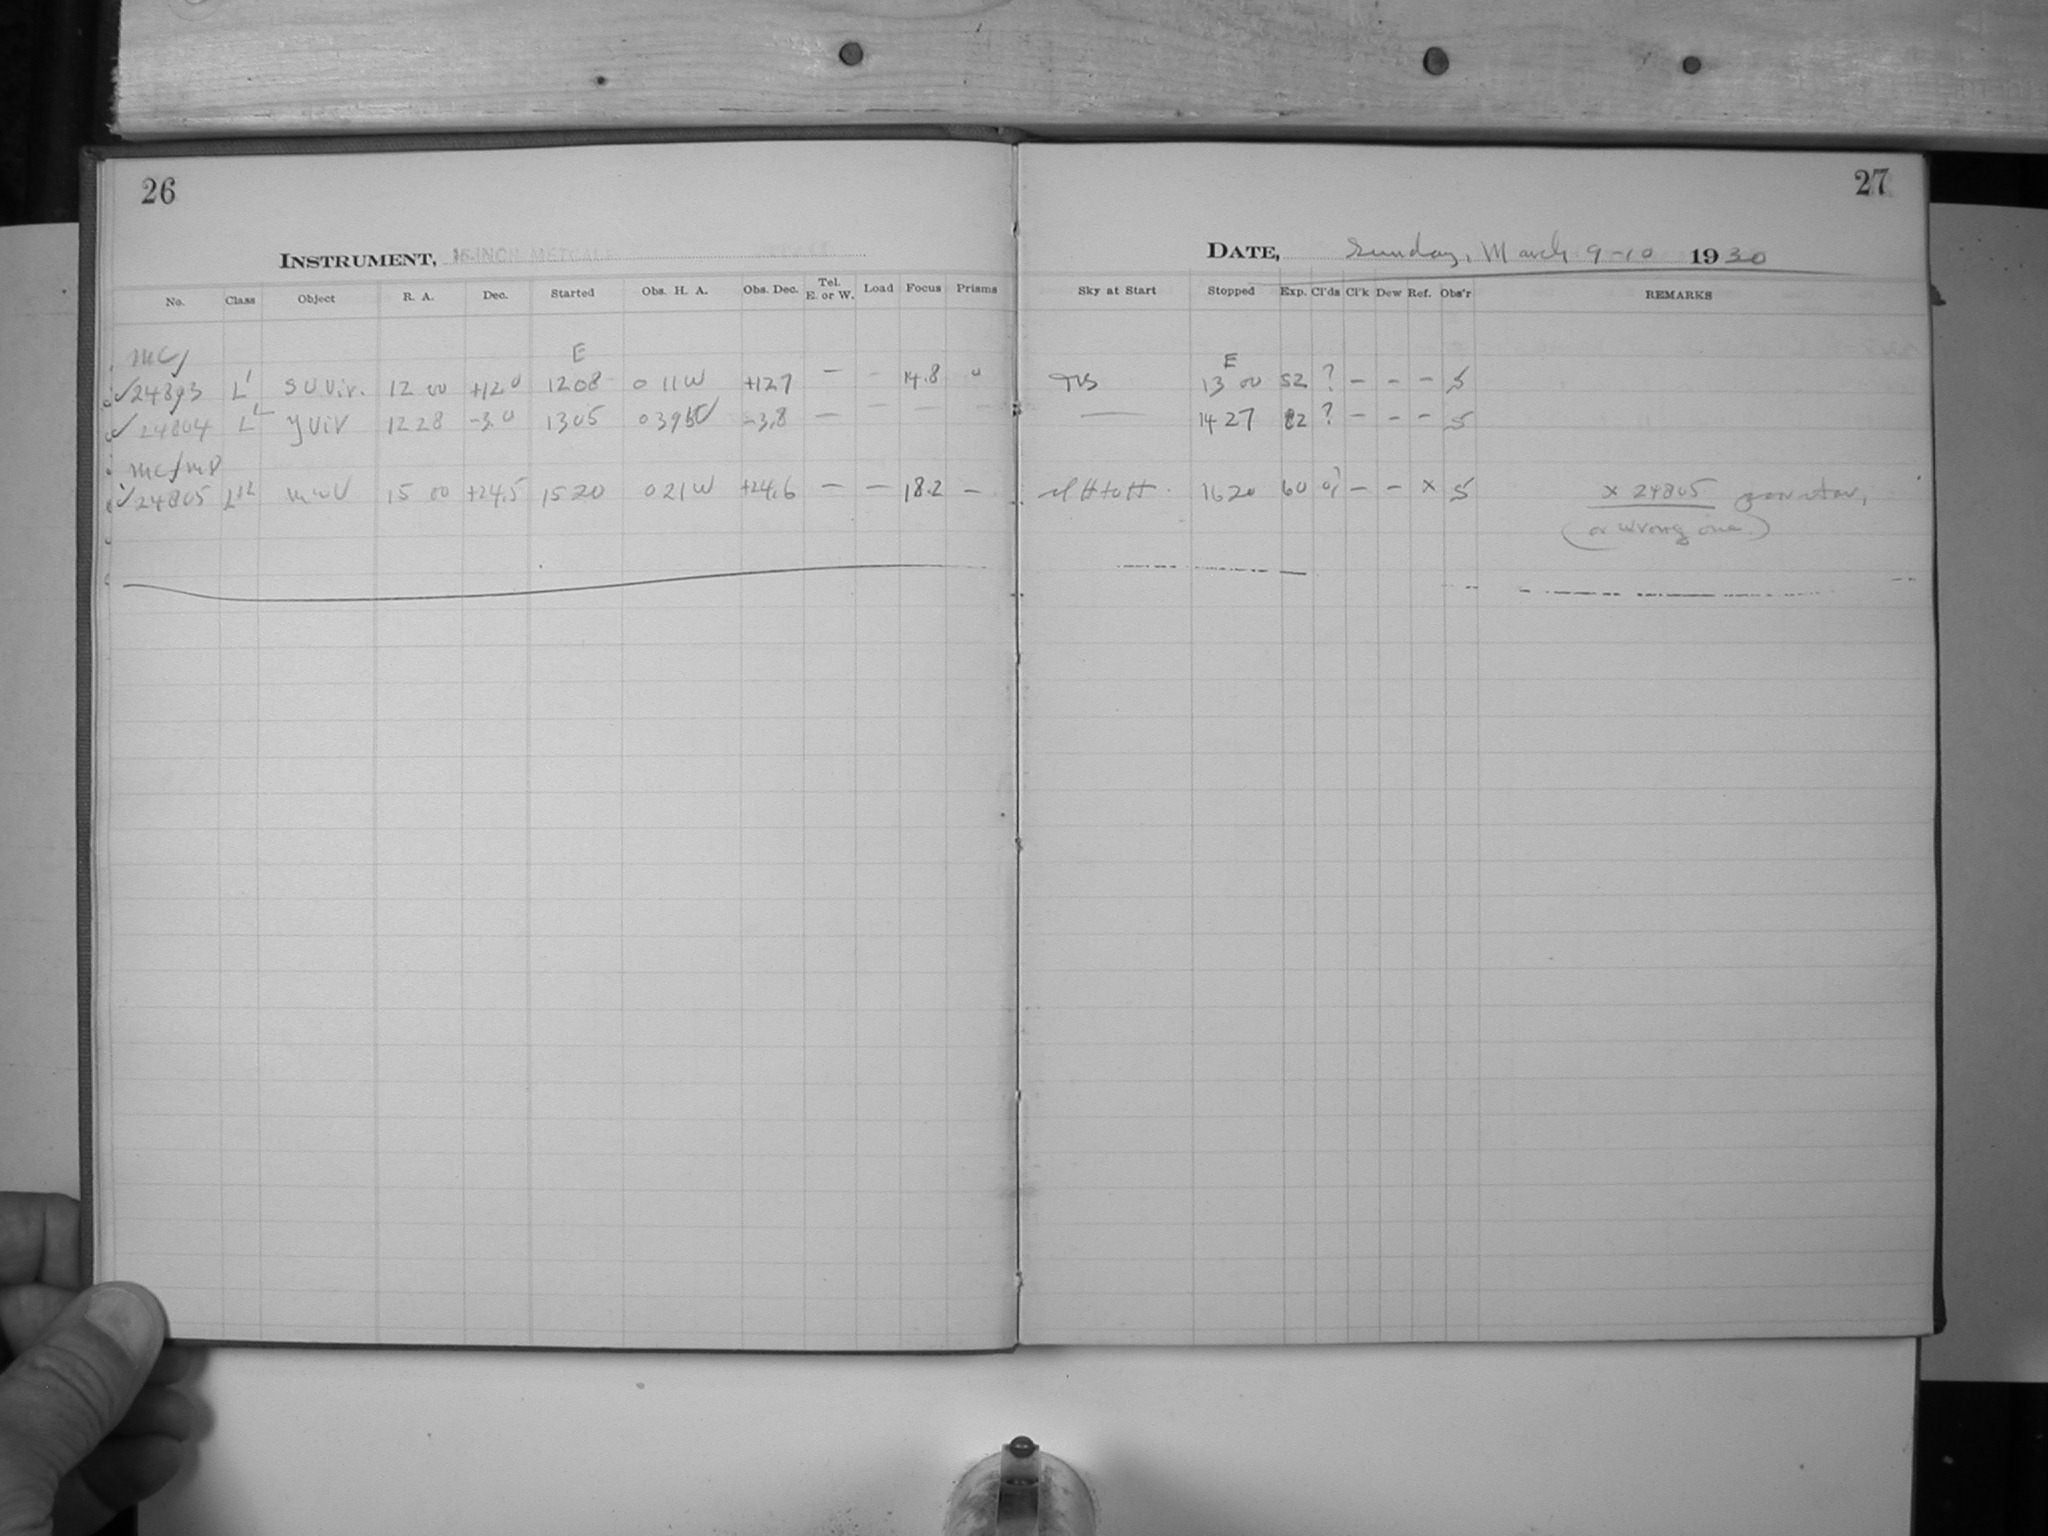 26
INSTRUMENT, 16-INCH METCALF
No. Class Object R. A. Dec. Started Obs. H. A. Obs. Dec. Tel. E. or W. Load Focus Prisms
MC/ E
✓24893 L' SUVir. 12 00 +12.0 1208 0 11 W +12.7 — — 14.8
✓24804 L YVir 12 28 -3.0 1305 0 39 W -3.8 — — — —
MC/MD
✓24805 15 00 +24.5 1520 0 21 W +24.6 — — 18.2 —
27
DATE, Sunday, March 9-10 1930
Sky at Start Stopped Exp. Cl'ds Cl'k Dew Ref. Obs'r REMARKS
E
13 00 52 ? — — — S
— 14 27 82 ? — — — S
1620 60 — — x S x 24805
(or wrong one.)